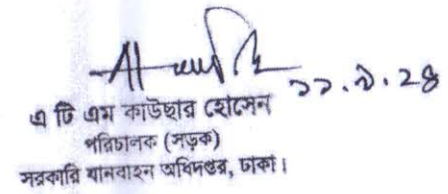 ২২.৯.২৪
এ টি এম কাউছার হোসেন
পরিচালক (সড়ক)
সরকারি যানবাহন অধিদপ্তর, ঢাকা।